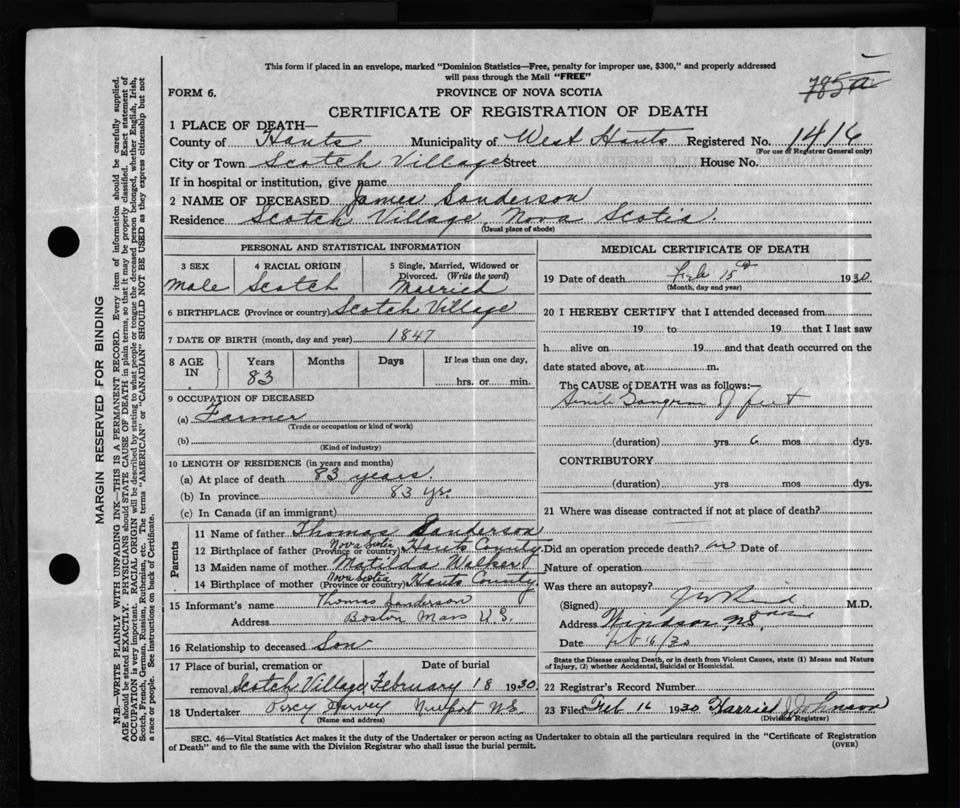 This form if placed in an envelope, marked "Dominion Statistics—Free, penalty for improper use, $300," and properly addressed
will pass through the Mail "FREE"
785a
FORM 6.
PROVINCE OF NOVA SCOTIA
CERTIFICATE OF REGISTRATION OF DEATH
1 PLACE OF DEATH—
County of Hants Municipality of West Hants Registered No. 1416
(For use of Registrar General only)
City or Town Scotch Village Street House No.
If in hospital or institution, give name
2 NAME OF DECEASED James Sanderson
Residence Scotch Village, Nova Scotia.
(Usual place of abode)
PERSONAL AND STATISTICAL INFORMATION
3 SEX 4 RACIAL ORIGIN 5 Single, Married, Widowed or
Divorced. (Write the word)
Male Scotch Married
6 BIRTHPLACE (Province or country) Scotch Village
7 DATE OF BIRTH (month, day and year) 1847
8 AGE IN Years Months Days If less than one day,
83 hrs. or min.
9 OCCUPATION OF DECEASED
(a) Farmer
(Trade or occupation or kind of work)
(b)
(Kind of industry)
10 LENGTH OF RESIDENCE (in years and months)
(a) At place of death 83 years.
(b) In province 83 yrs
(c) In Canada (if an immigrant)
Parents
11 Name of father Thomas Sanderson
12 Birthplace of father (Province or country) Nova Scotia Hants County.
13 Maiden name of mother Matilda Walker
14 Birthplace of mother (Province or country) Nova Scotia Hants County.
15 Informant's name Thomas Sanderson
Address Boston Mass U.S.
16 Relationship to deceased Son
17 Place of burial, cremation or Date of burial
removal Scotch Village February 18 1930.
18 Undertaker Percy Harvey Newport N.S.
(Name and address)
MEDICAL CERTIFICATE OF DEATH
19 Date of death Feb 15th 1930
(Month, day and year)
20 I HEREBY CERTIFY that I attended deceased from
19 to 19 that I last saw
h alive on 19 and that death occurred on the
date stated above, at m.
The CAUSE of DEATH was as follows:—
Senile Gangrene of feet
(duration) yrs 6 mos. dys.
CONTRIBUTORY
(duration) yrs. mos. dys.
21 Where was disease contracted if not at place of death?
Did an operation precede death? no Date of
Nature of operation
Was there an autopsy?
(Signed) M.D.
Address Windsor, N.S.
Date Feb 16/30
State the Disease causing Death, or in death from Violent Causes, state (1) Means and Nature
of Injury, (2) whether Accidental, Suicidal or Homicidal.
22 Registrar's Record Number
23 Filed Feb 16 1930 Harried J Johnson
(Division Registrar)
SEC. 46—Vital Statistics Act makes it the duty of the Undertaker or person acting as Undertaker to obtain all the particulars required in the "Certificate of Registration
of Death" and to file the same with the Division Registrar who shall issue the burial permit.
(OVER)
MARGIN RESERVED FOR BINDING
N.B.—WRITE PLAINLY WITH UNFADING INK—THIS IS A PERMANENT RECORD. Every item of information should be carefully supplied.
AGE should be stated EXACTLY. PHYSICIANS should STATE CAUSE OF DEATH in plain terms, so that it may be properly classified. Exact statement of
OCCUPATION is very important. RACIAL ORIGIN will be described by stating to what people or tongue the deceased person belonged, whether English, Irish,
Scotch, French, German, Russian, Ruthenian, etc. The terms "AMERICAN" or "CANADIAN" SHOULD NOT BE USED as they express citizenship but not
a race or people. See instructions on back of Certificate.